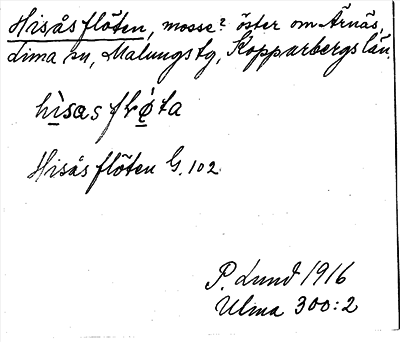 Hisåsflöten, mosse? öster om Ärnäs,
Lima sn, Malungs tg, Kopparbergs län.
Hisåsflöten G. 102
P. Lund 1916
Ulma 300:2